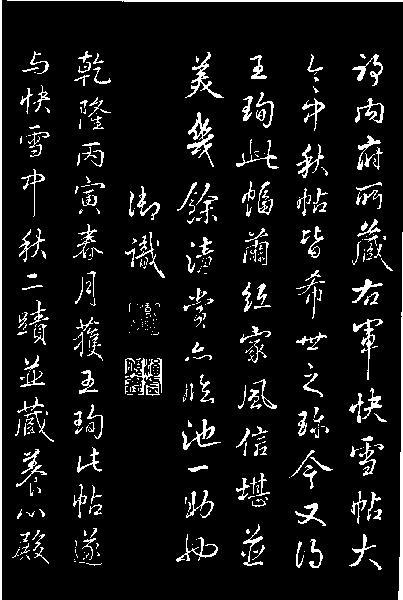 耶内府所藏右軍快雪帖大
令中秋帖皆希世之珎今又得
王珣此幅繭紙家風信堪並
美幾餘清賞亦臨池一助也
御識
乾隆丙寅春月獲王珣此帖遂
与快雪中秋二蹟並藏養心殿